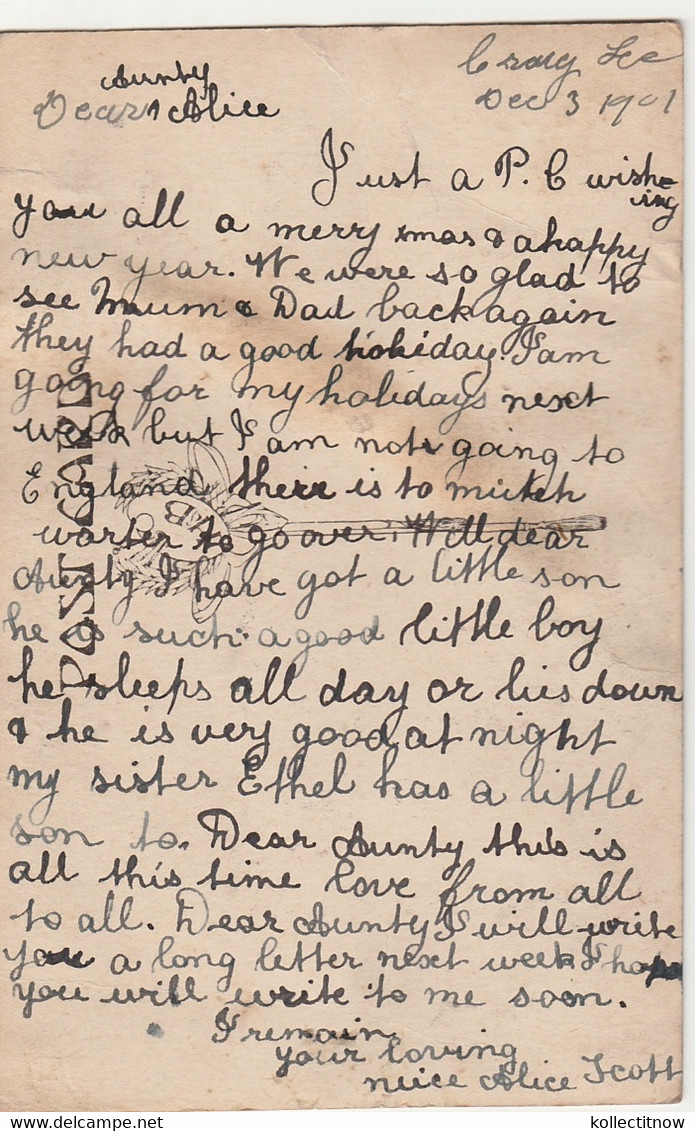 Craig Lee
Dec 3 1901
Aunty
Dear ^ Alice
Just a P. C wish-
ing
you all a merry xmas & a happy
new year. We were so glad to
see Mum & Dad back again
they had a good holiday. I am
going for my holidays next
week but I am not going to
England there is to mutch
warter to go over. Well dear
Aunty I have got a little son
he is such a good little boy
he sleeps all day or lies down
& he is very good at night
my sister Ethel has a little
son to. Dear Aunty this is
all this time love from all
to all. Dear Aunty I will write
you a long letter next week I hope
you will write to me soon.
I remain
your loving
neice Alice Scott
POST CARD
kollectitnow